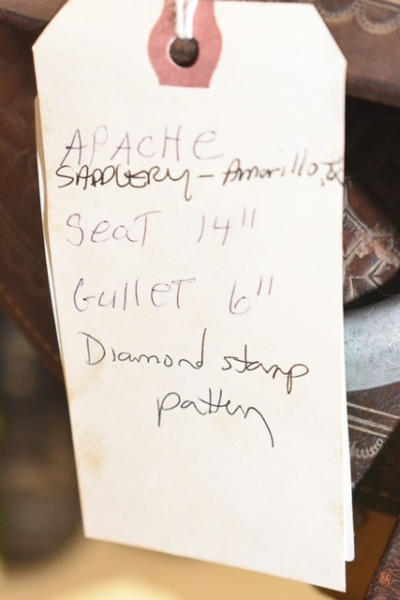 APACHE
SADDLERY - Amarillo, Tx
Seat 14"
Gullet 6"
Diamond stamp
pattern